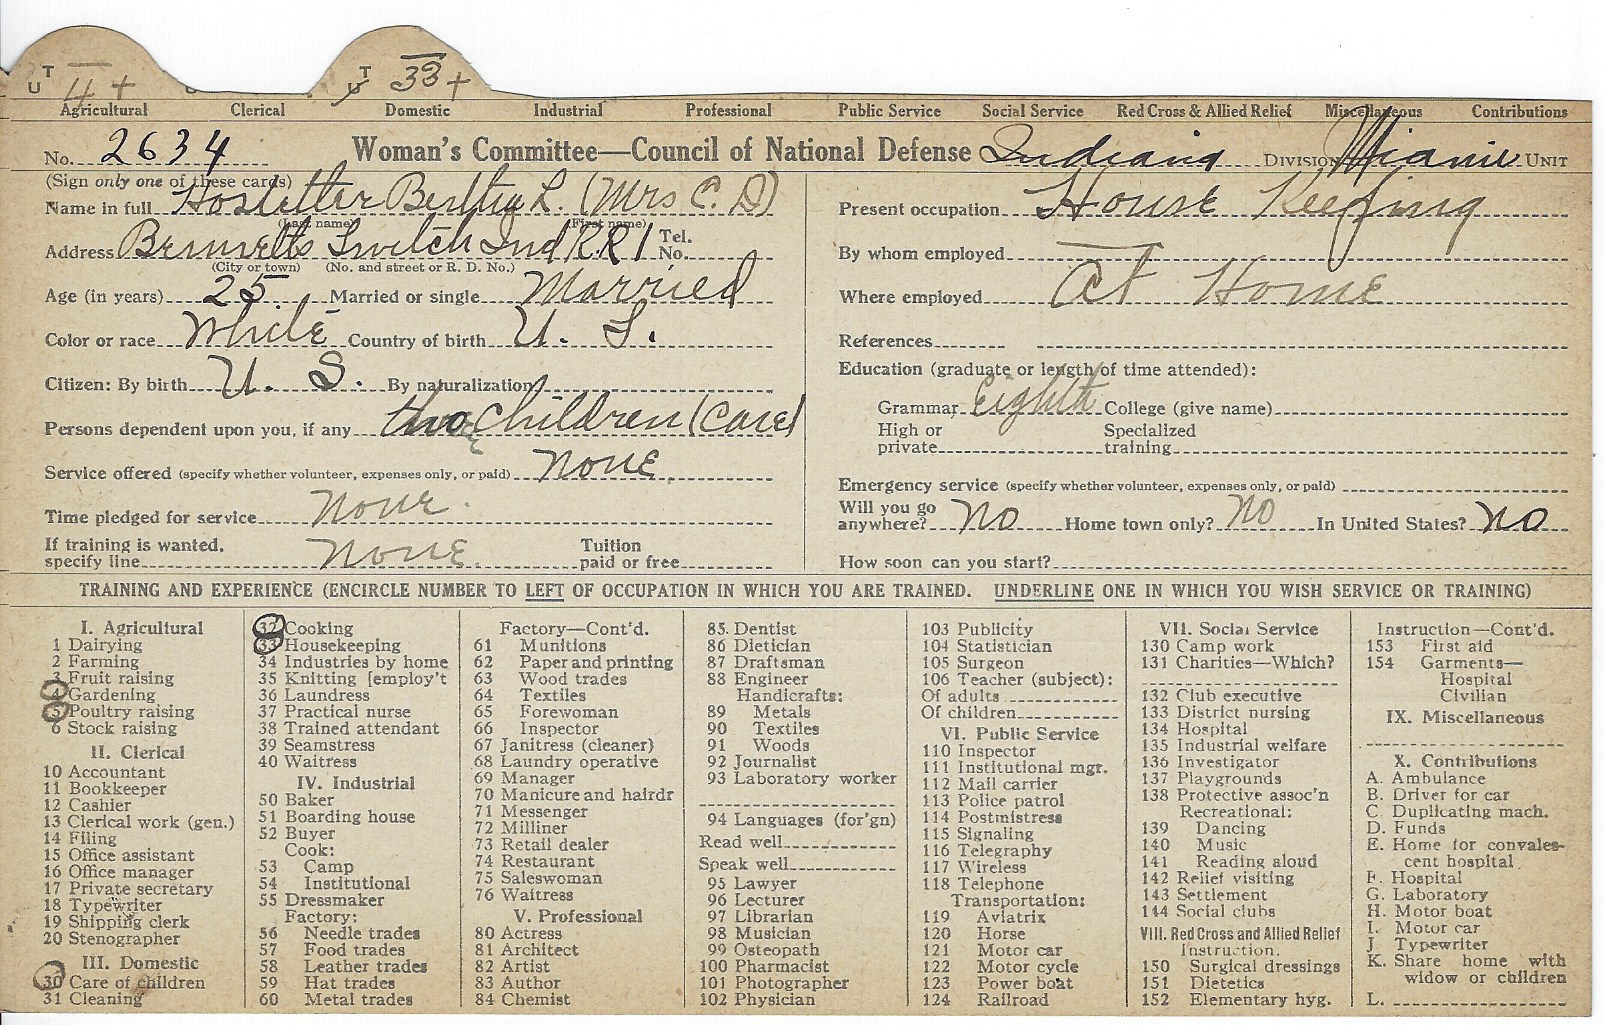 U T 4 + U T 33 +
Agricultural Clerical Domestic Industrial Professional Public Service Social Service Red Cross & Allied Relief Miscellaneous Contributions
No. 2634 Woman's Committee—Council of National Defense Indiana DIVISION Miami UNIT
(Sign only one of these cards)
Name in full Hostetter Bertha L. (Mrs C. D)
(Last name) (First name)
Address Bennetts Switch Ind RR 1 Tel. No.
(City or town) (No. and street or R. D. No.)
Age (in years) 25 Married or single Married
Color or race White Country of birth U. S.
Citizen: By birth U. S. By naturalization
Persons dependent upon you, if any two Children (Care)
Service offered (specify whether volunteer, expenses only, or paid) None
Time pledged for service None.
If training is wanted, specify line None. Tuition paid or free
Present occupation House Keeping
By whom employed
Where employed At Home
References
Education (graduate or length of time attended):
Grammar Eighth College (give name)
High or private Specialized training
Emergency service (specify whether volunteer, expenses only, or paid)
Will you go anywhere? No Home town only? No In United States? No
How soon can you start?
TRAINING AND EXPERIENCE (ENCIRCLE NUMBER TO LEFT OF OCCUPATION IN WHICH YOU ARE TRAINED. UNDERLINE ONE IN WHICH YOU WISH SERVICE OR TRAINING)
I. Agricultural
1 Dairying
2 Farming
3 Fruit raising
4 Gardening
5 Poultry raising
6 Stock raising
II. Clerical
10 Accountant
11 Bookkeeper
12 Cashier
13 Clerical work (gen.)
14 Filing
15 Office assistant
16 Office manager
17 Private secretary
18 Typewriter
19 Shipping clerk
20 Stenographer
III. Domestic
30 Care of children
31 Cleaning
32 Cooking
33 Housekeeping
34 Industries by home
35 Knitting [employ't
36 Laundress
37 Practical nurse
38 Trained attendant
39 Seamstress
40 Waitress
IV. Industrial
50 Baker
51 Boarding house
52 Buyer
Cook:
53 Camp
54 Institutional
55 Dressmaker
Factory:
56 Needle trades
57 Food trades
58 Leather trades
59 Hat trades
60 Metal trades
Factory—Cont'd.
61 Munitions
62 Paper and printing
63 Wood trades
64 Textiles
65 Forewoman
66 Inspector
67 Janitress (cleaner)
68 Laundry operative
69 Manager
70 Manicure and hairdr
71 Messenger
72 Milliner
73 Retail dealer
74 Restaurant
75 Saleswoman
76 Waitress
V. Professional
80 Actress
81 Architect
82 Artist
83 Author
84 Chemist
85. Dentist
86 Dietician
87 Draftsman
88 Engineer
Handicrafts:
89 Metals
90 Textiles
91 Woods
92 Journalist
93 Laboratory worker
94 Languages (for'gn)
Read well
Speak well
95 Lawyer
96 Lecturer
97 Librarian
98 Musician
99 Osteopath
100 Pharmacist
101 Photographer
102 Physician
103 Publicity
104 Statistician
105 Surgeon
106 Teacher (subject):
Of adults
Of children
VI. Public Service
110 Inspector
111 Institutional mgr.
112 Mail carrier
113 Police patrol
114 Postmistress
115 Signaling
116 Telegraphy
117 Wireless
118 Telephone
Transportation:
119 Aviatrix
120 Horse
121 Motor car
122 Motor cycle
123 Power boat
124 Railroad
VII. Social Service
130 Camp work
131 Charities—Which?
132 Club executive
133 District nursing
134 Hospital
135 Industrial welfare
136 Investigator
137 Playgrounds
138 Protective assoc'n
Recreational:
139 Dancing
140 Music
141 Reading aloud
142 Relief visiting
143 Settlement
144 Social clubs
VIII. Red Cross and Allied Relief
Instruction:
150 Surgical dressings
151 Dietetics
152 Elementary hyg.
Instruction—Cont'd.
153 First aid
154 Garments—
Hospital
Civilian
IX. Miscellaneous
X. Contributions
A. Ambulance
B. Driver for car
C. Duplicating mach.
D. Funds
E. Home for convales-
cent hospital
F. Hospital
G. Laboratory
H. Motor boat
I. Motor car
J. Typewriter
K. Share home with
widow or children
L.